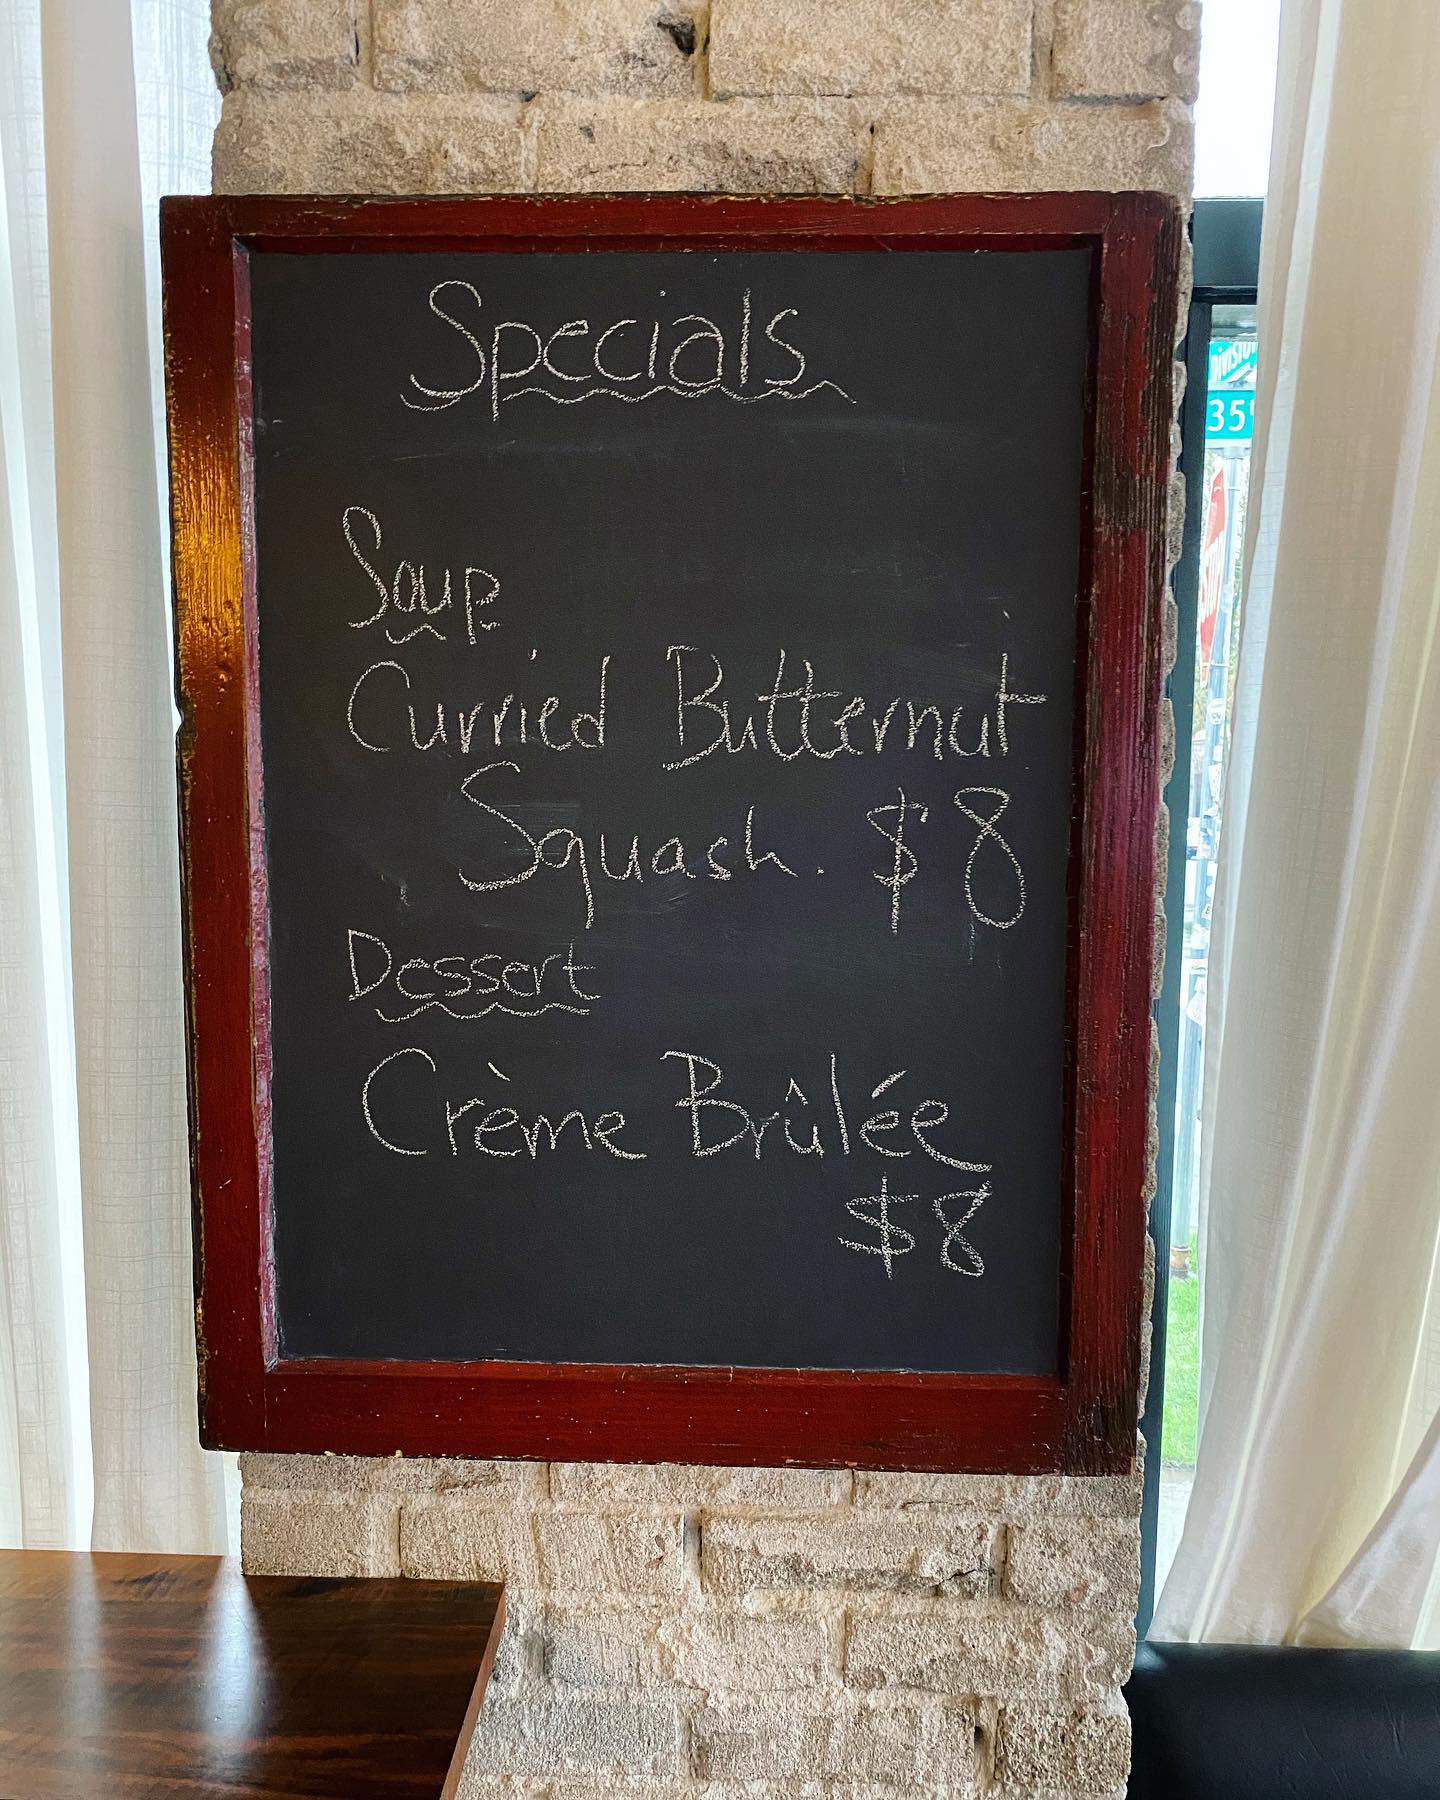 Specials
Soup
Curried Butternut
Squash. $8
Dessert
Crème Brûlée
$8
35